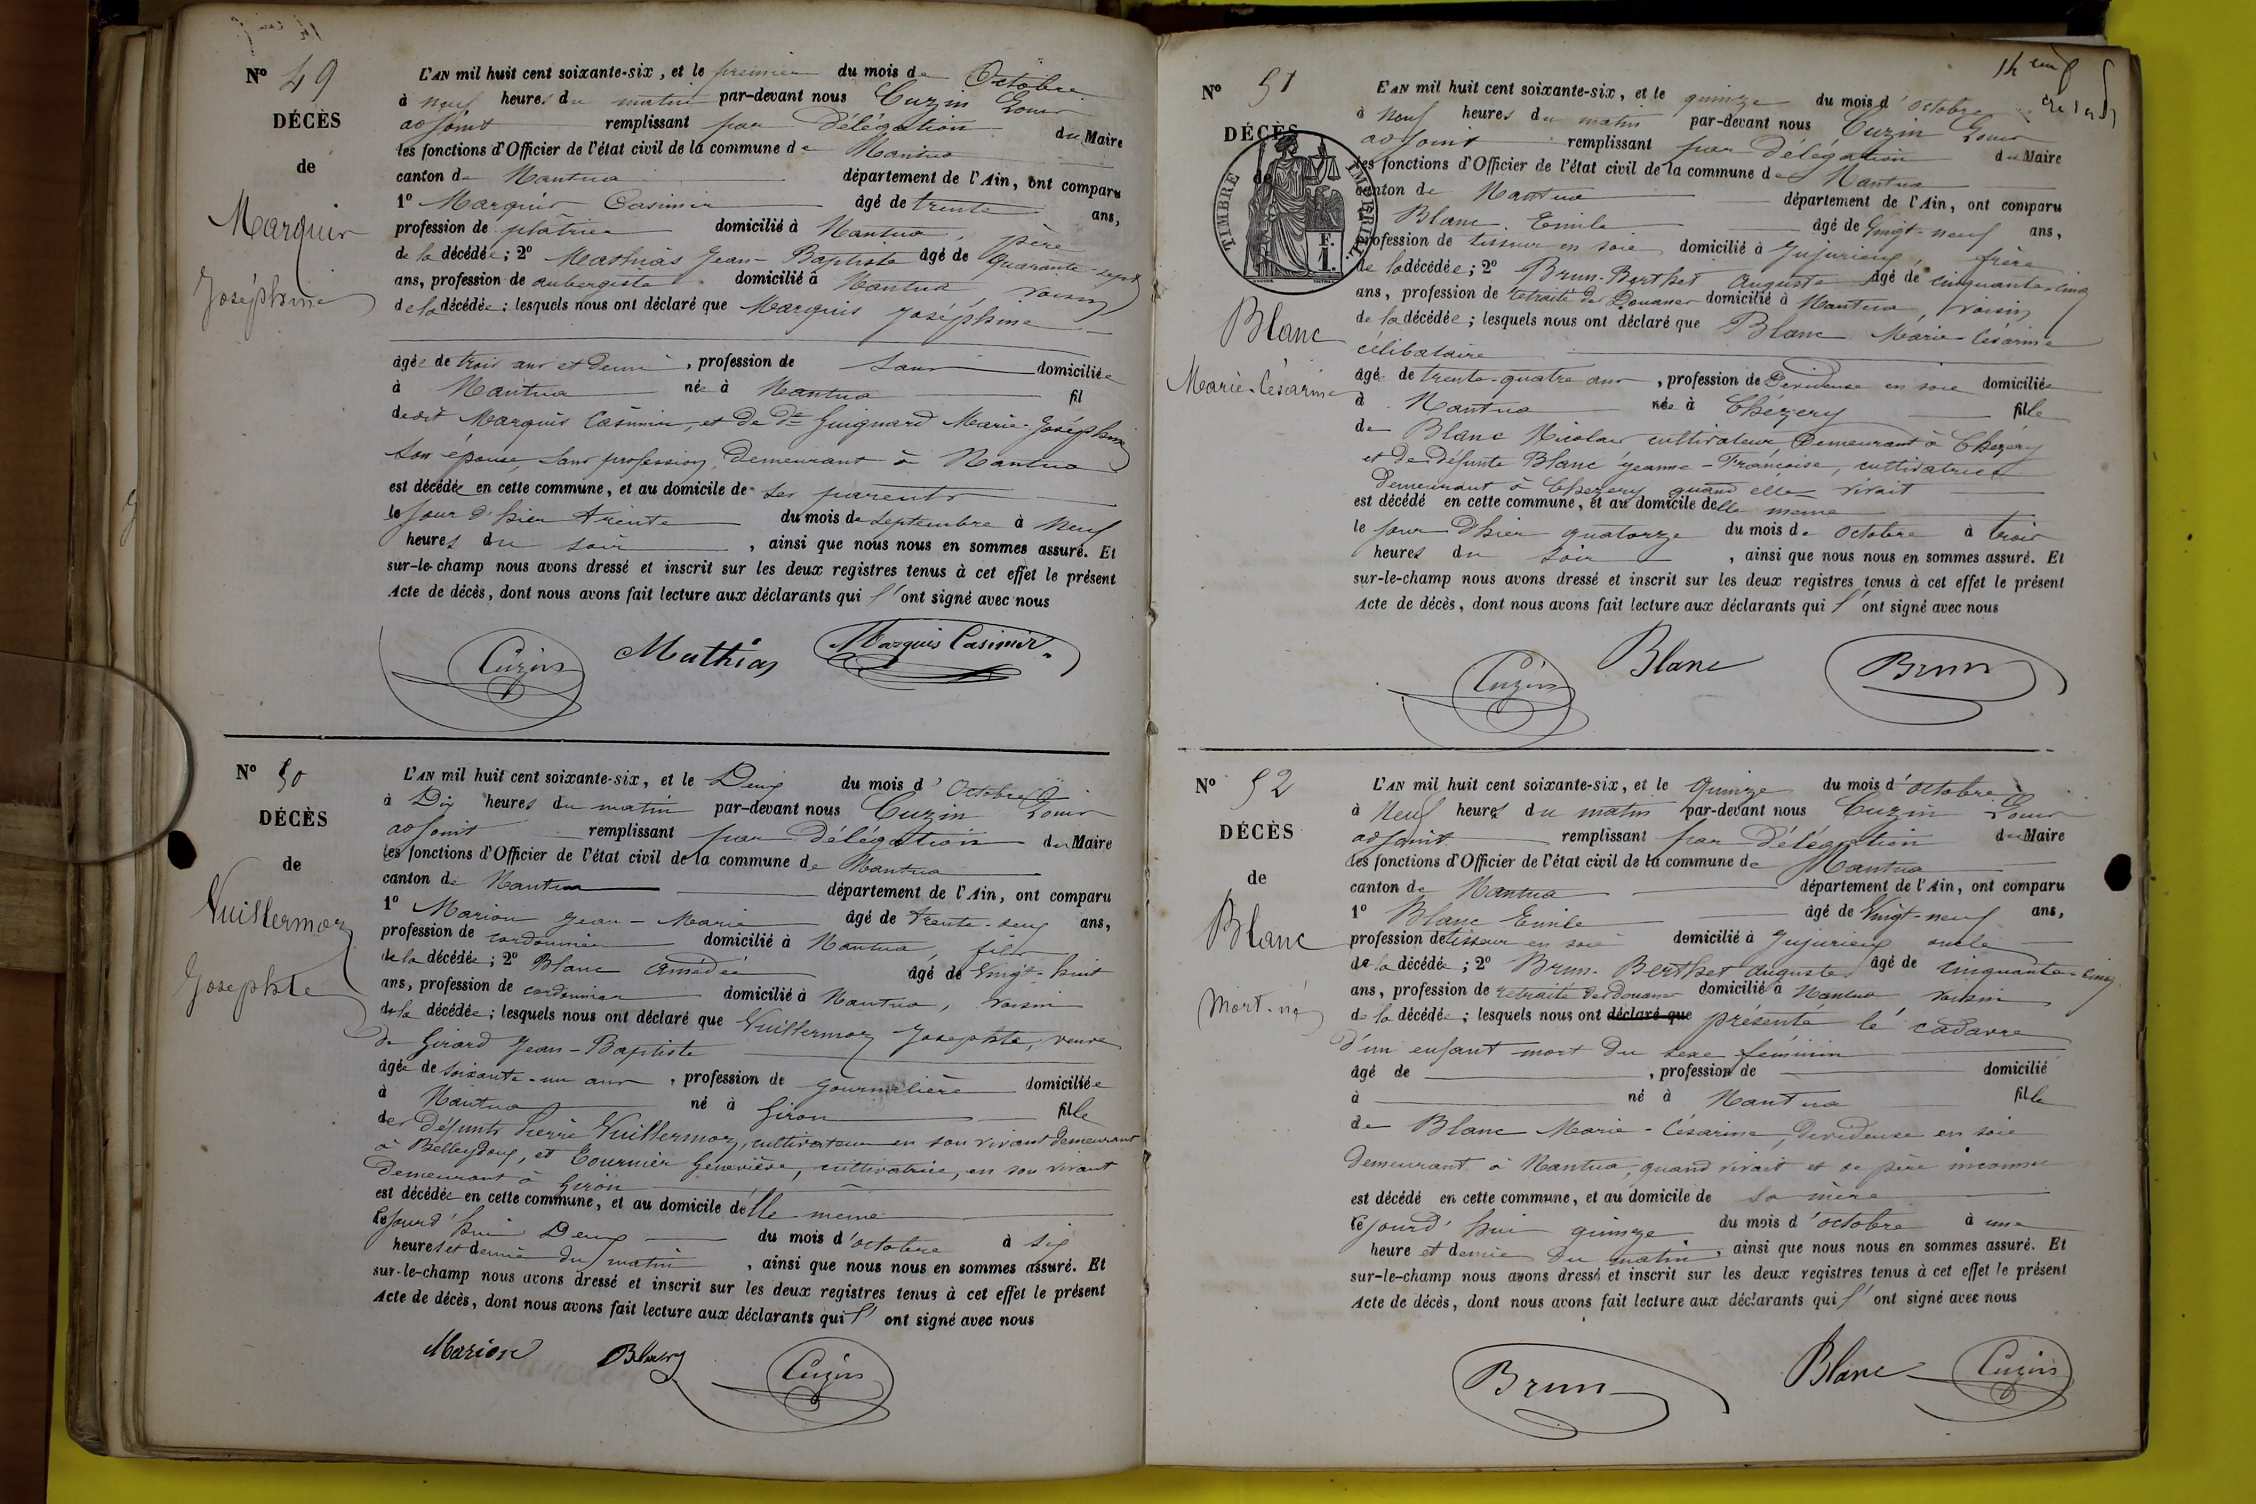 N° 49
DÉCÈS
de
Marquis
Joséphine
L'AN mil huit cent soixante-six, et le premier du mois de Octobre
à neuf heures du matin par-devant nous Cuzin Louis
adjoint remplissant par Délégation du Maire
les fonctions d'Officier de l'état civil de la commune de Nantua
canton de Nantua département de l'Ain, ont comparu
1° Marquis Casimir âgé de trente ans,
profession de plâtrier domicilié à Nantua, père
de la décédée; 2° Mathias Jean-Baptiste âgé de quarante-sept
ans, profession de aubergiste domicilié à Nantua, voisin
de la décédée; lesquels nous ont déclaré que Marquis Joséphine
âgée de trois ans et demi, profession de sans domiciliée
à Nantua née à Nantua fil
de dit Marquis Casimir, et de De Guignard Marie-Joséphine
son épouse, sans profession, demeurant à Nantua
est décédée en cette commune, et au domicile de ses parents
le jour d'hier trente du mois de septembre à neuf
heures du soir, ainsi que nous nous en sommes assuré. Et
sur-le-champ nous avons dressé et inscrit sur les deux registres tenus à cet effet le présent
Acte de décès, dont nous avons fait lecture aux déclarants qui l'ont signé avec nous
Cuzin Mathias Marquis Casimir
N° 50
DÉCÈS
de
Vuillermoz
Josephte
L'AN mil huit cent soixante-six, et le Deux du mois d'Octobre
à Dix heures du matin par-devant nous Cuzin Louis
adjoint remplissant par Délégation du Maire
les fonctions d'Officier de l'état civil de la commune de Nantua
canton de Nantua département de l'Ain, ont comparu
1° Marion Jean-Marie âgé de trente-deux ans,
profession de cordonnier domicilié à Nantua, fils
de la décédée; 2° Blanc Amédée âgé de vingt-huit
ans, profession de cordonnier domicilié à Nantua, voisin
de la décédée; lesquels nous ont déclaré que Vuillermoz Josephte, veuve
de Girard Jean-Baptiste
âgée de soixante-un ans, profession de journalière domiciliée
à Nantua né à Giron fille
des défunts Pierre Vuillermoz, cultivateur en son vivant demeurant
à Belleydoux, et Tournier Geneviève, cultivatrice, en son vivant
demeurant à Giron
est décédée en cette commune, et au domicile d'elle même
cejourd'hui Deux du mois d'octobre à six
heures et demie du matin, ainsi que nous nous en sommes assuré. Et
sur-le-champ nous avons dressé et inscrit sur les deux registres tenus à cet effet le présent
Acte de décès, dont nous avons fait lecture aux déclarants qui l'ont signé avec nous
Marion Blanc Cuzin
N° 51
DÉCÈS
de
TIMBRE IMPÉRIAL
F.
1.
Blanc
Marie-Césarine
L'AN mil huit cent soixante-six, et le quinze du mois d'octobre
à neuf heures du matin par-devant nous Cuzin Louis
adjoint remplissant par Délégation du Maire
les fonctions d'Officier de l'état civil de la commune de Nantua
canton de Nantua département de l'Ain, ont comparu
Blanc Emile âgé de vingt-neuf ans,
profession de tisseur en soie domicilié à Jujurieux, frère
de la décédée; 2° Brun-Berthet Auguste âgé de cinquante-cinq
ans, profession de retraité des Douanes domicilié à Nantua, voisin
de la décédée; lesquels nous ont déclaré que Blanc Marie-Césarine
célibataire
âgé de trente-quatre ans, profession de Dévideuse en soie domiciliée
à Nantua née à Chézery fille
de Blanc Nicolas cultivateur, demeurant à Chézery
et de défunte Blanc Jeanne-Françoise, cultivatrice
demeurant à Chezery quand elle vivait
est décédé en cette commune, et au domicile d'elle meme
le jour d'hier quatorze du mois de octobre à trois
heures du soir, ainsi que nous nous en sommes assuré. Et
sur-le-champ nous avons dressé et inscrit sur les deux registres tenus à cet effet le présent
Acte de décès, dont nous avons fait lecture aux déclarants qui l'ont signé avec nous
Cuzin Blanc Brun
N° 52
DÉCÈS
de
Blanc
Mort-né
L'AN mil huit cent soixante-six, et le quinze du mois d'octobre
à Neuf heures du matin par-devant nous Cuzin Louis
adjoint remplissant par Délégation du Maire
les fonctions d'Officier de l'état civil de la commune de Nantua
canton de Nantua département de l'Ain, ont comparu
1° Blanc Emile âgé de vingt-neuf ans,
profession de tisseur en soie domicilié à Jujurieux oncle
de la décédée; 2° Brun-Berthet Auguste âgé de cinquante-cinq
ans, profession de retraité des douanes domicilié à Nantua voisin
de la décédée; lesquels nous ont déclaré que présenté le cadavre
d'un enfant mort du sexe féminin
âgé de , profession de domicilié
à né à Nantua fille
de Blanc Marie-Césarine, Dévideuse en soie
demeurant à Nantua, quand vivait et de père inconnu
est décédé en cette commune, et au domicile de sa mère
cejourd'hui quinze du mois d'octobre à une
heure et demie du matin, ainsi que nous nous en sommes assuré. Et
sur-le-champ nous avons dressé et inscrit sur les deux registres tenus à cet effet le présent
Acte de décès, dont nous avons fait lecture aux déclarants qui l'ont signé avec nous
Brun Blanc Cuzin